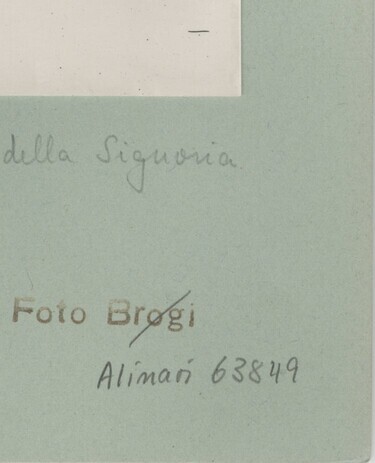 della Signoria
Foto Brogi
Alinari 63849